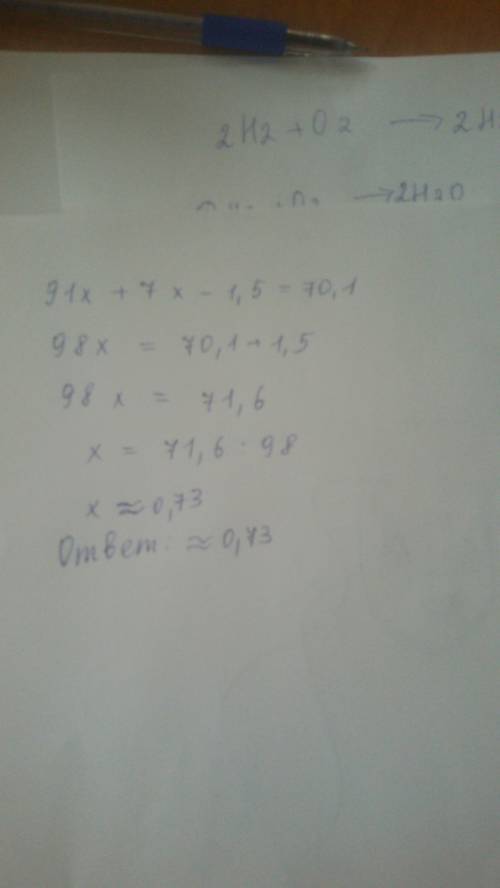 2H2 + O2 → 2H
→ 2H2O
91x + 7x - 1,5 = 70,1
98x = 70,1 + 1,5
98x = 71,6
x = 71,6 : 98
x ≈ 0,73
Ответ: ≈ 0,73